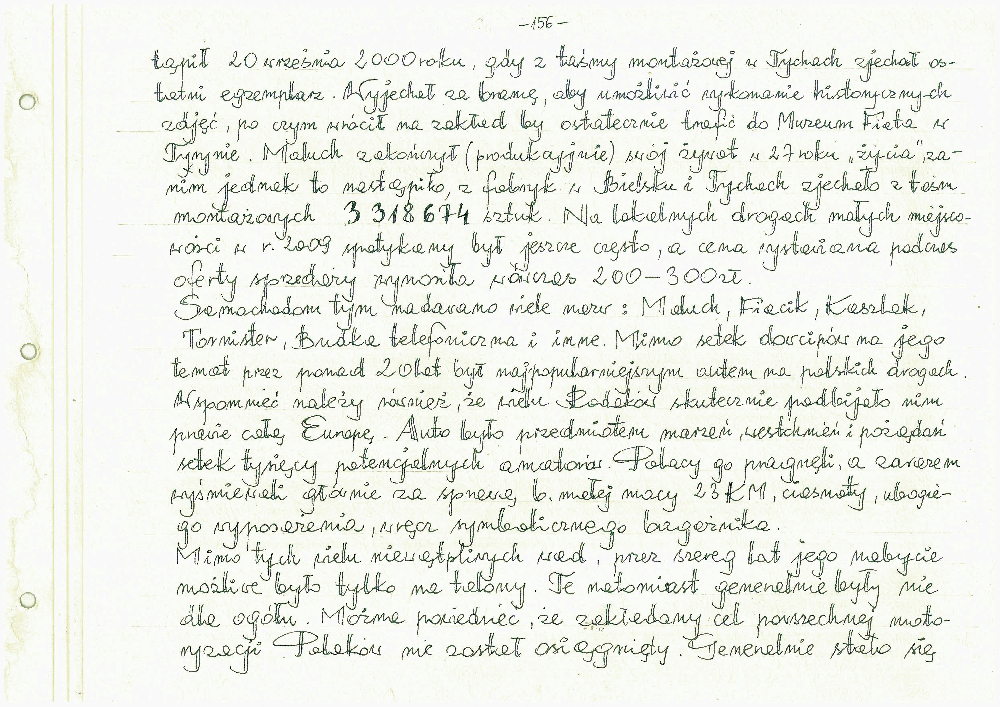 -156-
tąpił 20 września 2000 roku, gdy z taśmy montażowej w Tychach zjechał os-
tatni egzemplarz. Wyjechał za bramę, aby umożliwić wykonanie historycznych
zdjęć, po czym wrócił na zakład by ostatecznie trafić do Muzeum Fiata w
Turynie. Maluch zakończył (produkcyjnie) swój żywot w 27 roku „życia", za-
nim jednak to nastąpiło, z fabryk w Bielsku i Tychach zjechało z taśm
montażowych 3 318 674 sztuk. Na lokalnych drogach małych miejsco-
wości w r. 2009 spotykany był jeszcze często, a cena wystawiana podczas
oferty sprzedaży wynosiła wówczas 200-300 zł.
Samochodom tym nadawano wiele nazw: Maluch, Fiacik, Kaszlak,
Tornister, Budka telefoniczna i inne. Mimo setek dowcipów na jego
temat przez ponad 20 lat był najpopularniejszym autem na polskich drogach.
Wspomnieć należy również, że wielu Rodaków skutecznie podbijało nim
prawie całą Europę. Auto było przedmiotem marzeń, westchnień i pożądań
setek tysięcy potencjalnych amatorów. Polacy go pragnęli, a zarazem
wyśmiewali głównie za sprawą b. małej mocy 23 KM, ciasnoty, ubogie-
go wyposażenia, wręcz symbolicznego bagażnika.
Mimo tych wielu niewątpliwych wad, przez szereg lat jego nabycie
możliwe było tylko na talony. Te natomiast generalnie były nie
dla ogółu. Można powiedzieć, że zakładany cel powszechnej moto-
ryzacji Polaków nie został osiągnięty. Generalnie stało się